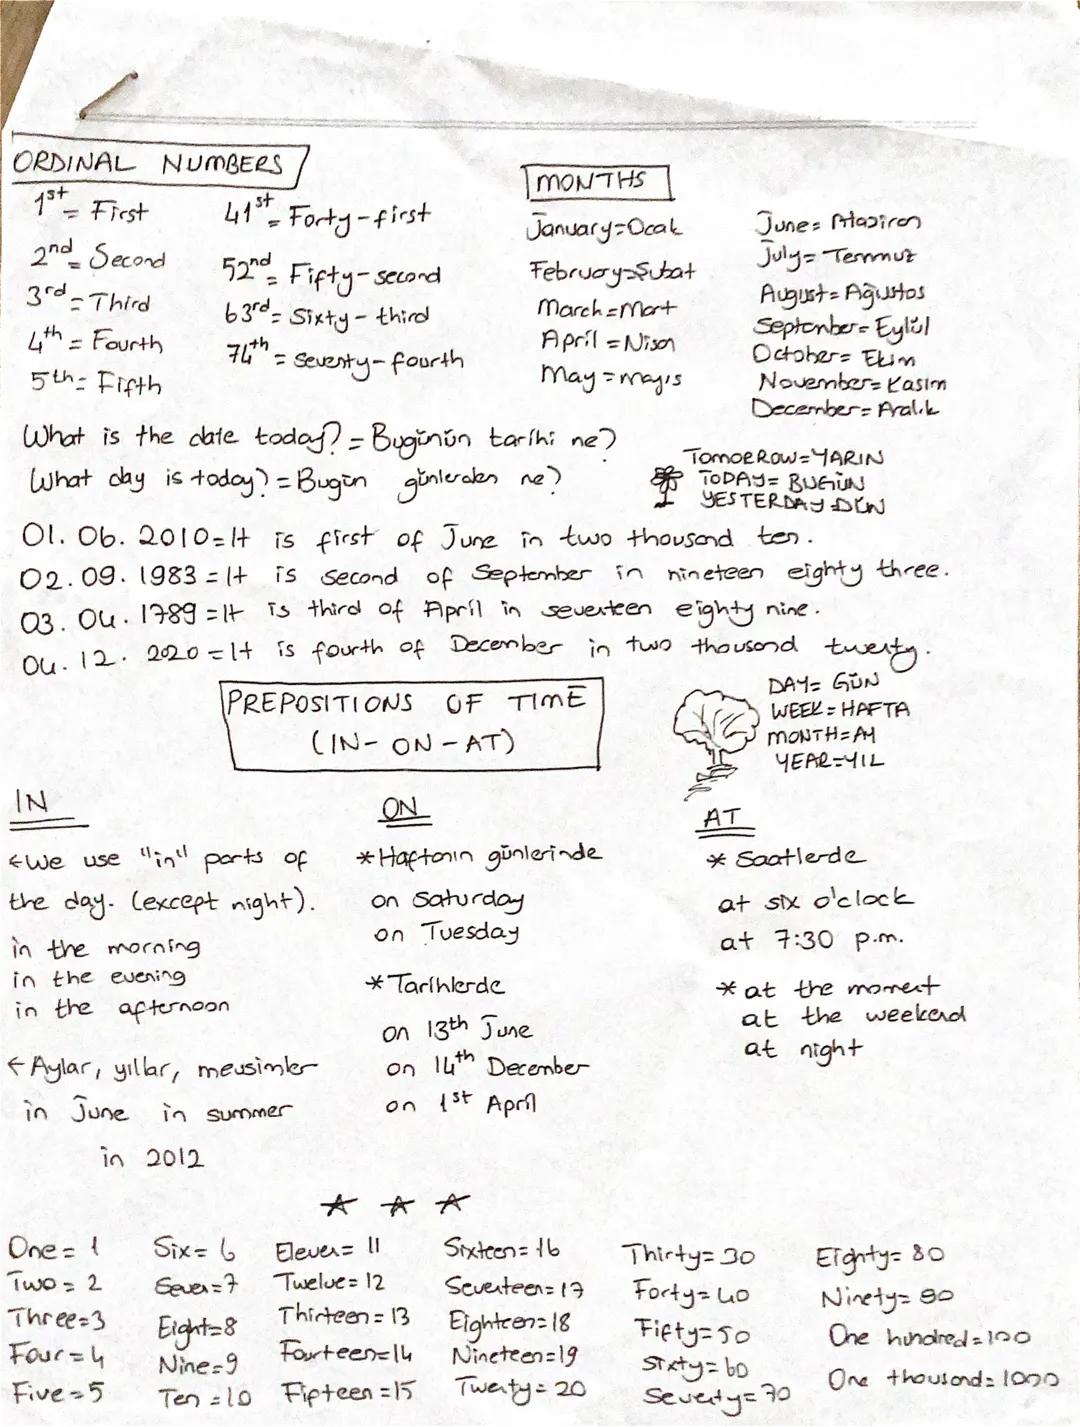 ORDINAL NUMBERS
1st = First
2nd = Second
3rd = Third
4th = Fourth
5th = Fifth
41st = Forty-first
52nd = Fifty-second
63rd = Sixty-third
74th = Seventy-fourth
MONTHS
January=Ocak
February=Şubat
March=Mart
April=Nisan
May=mayıs
June=Haziran
July=Temmuz
August=Ağustos
September=Eylül
October=Ekim
November=Kasım
December=Aralık
What is the date today?=Bugünün tarihi ne?
What day is today?=Bugün günlerden ne?
TOMORROW=YARIN
TODAY=BUGÜN
YESTERDAY=DÜN
01.06.2010=It is first of June in two thousand ten.
02.09.1983=It is second of September in nineteen eighty three.
03.04.1789=It is third of April in seventeen eighty nine.
04.12.2020=It is fourth of December in two thousand twenty.
PREPOSITIONS OF TIME
(IN-ON-AT)
DAY=GÜN
WEEK=HAFTA
MONTH=AY
YEAR=YIL
IN
We use "in" parts of
the day. (except night).
in the morning
in the evening
in the afternoon
Aylar, yıllar, mevsimler
in June in summer
in 2012
ON
*Haftanın günlerinde
on Saturday
on Tuesday
*Tarihlerde
on 13th June
on 14th December
on 1st April
AT
*Saatlerde
at six o'clock
at 7:30 p.m.
*at the moment
at the weekend
at night
One=1
Two=2
Three=3
Four=4
Five=5
Six=6
Seven=7
Eight=8
Nine=9
Ten=10
Eleven=11
Twelve=12
Thirteen=13
Fourteen=14
Fifteen=15
Sixteen=16
Seventeen=17
Eighteen=18
Nineteen=19
Twenty=20
Thirty=30
Forty=40
Fifty=50
Sixty=60
Seventy=70
Eighty=80
Ninety=90
One hundred=100
One thousand=1000